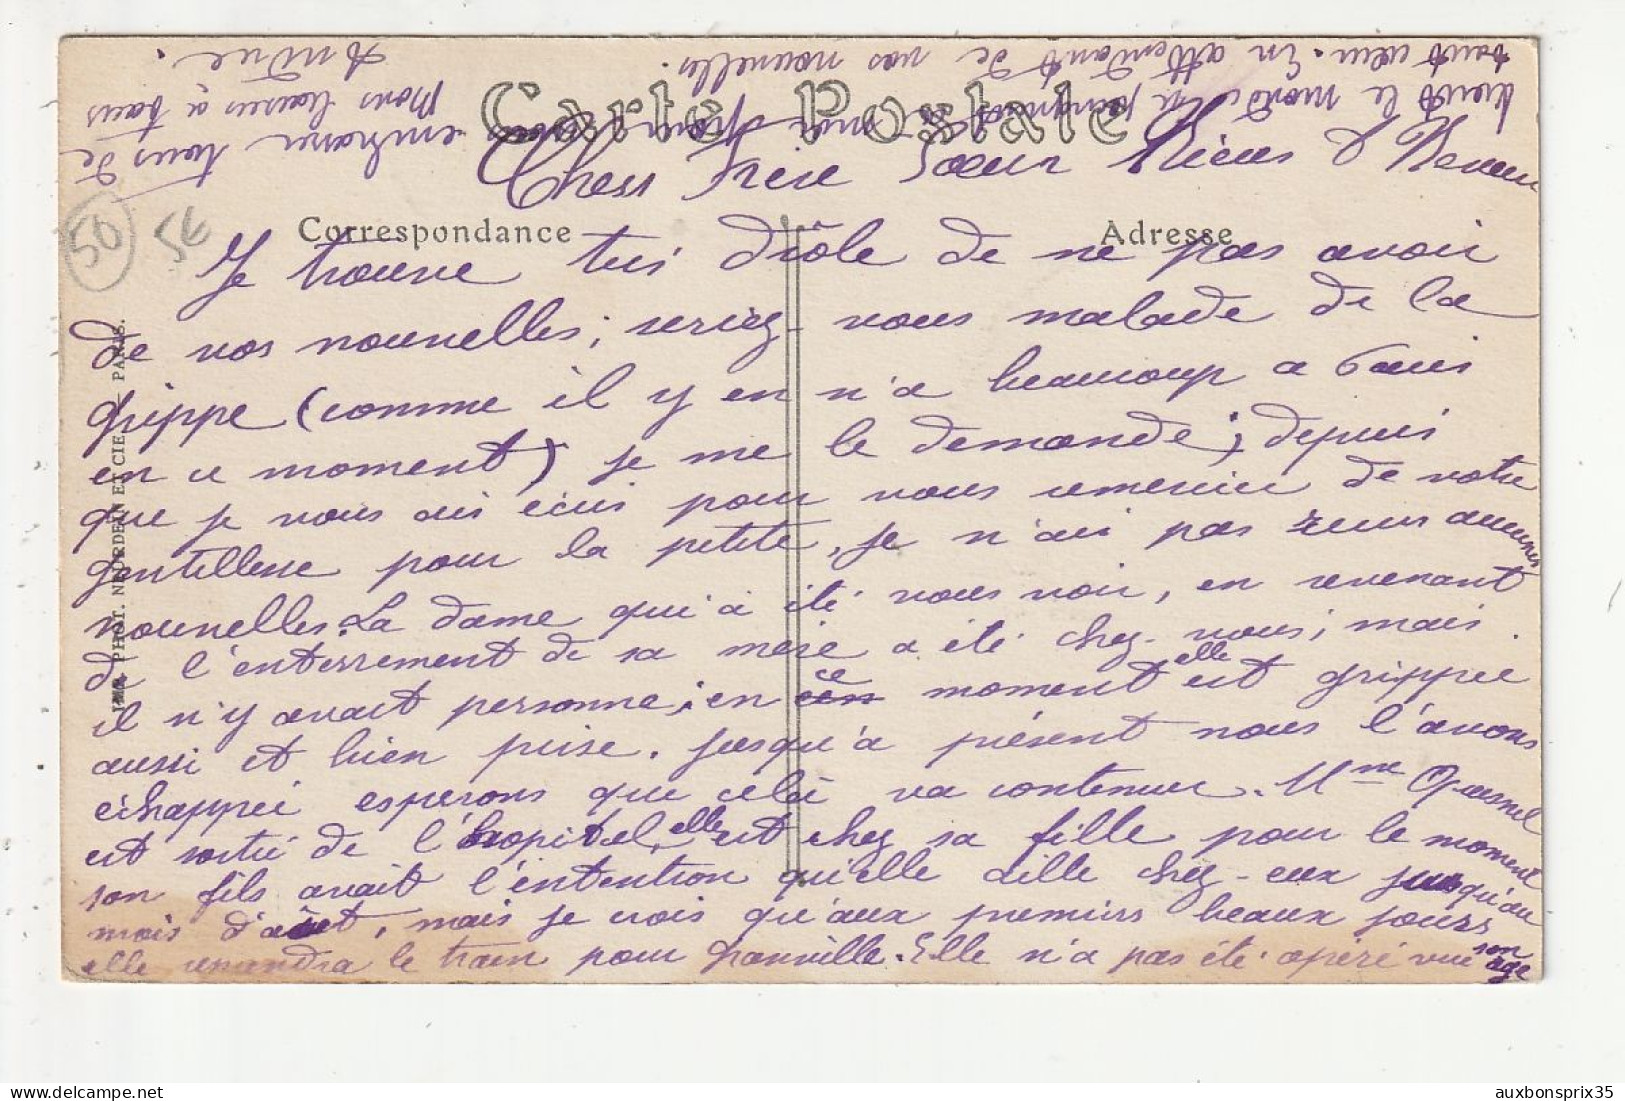 Carte Postale
Correspondance
Adresse
Chers Frère Sœur Nièces & Neveu
Je trouve très drôle de ne pas avoir
de vos nouvelles ; seriez-vous malade de la
grippe (comme il y en n'a beaucoup a Paris
en ce moment) je me le demande ; depuis
que je vous ais écris pour vous remercier de votre
gentillesse pour la petite, je n'ai pas reçus aucunes
nouvelles. La dame qui a été vous voir, en revenant
de l'enterrement de sa mère a été chez-vous ; mais
il n'y avait personne ; en ce moment elle est grippée
aussi et bien prise. Jusqu'à présent nous l'avons
échappée esperons que celà va continuer. Mme Quesnel
est sortie de l'hopital, elle est chez sa fille pour le moment
son fils avait l'intention qu'elle aille chez-eux jusqu'au
mois d'août, mais je crois qu'aux premiers beaux jours
elle reprendra le train pour Granville. Elle n'a pas été opéré vue son age
tout le monde
pour moi
embrasser tous de
tout cœur. En attendant de vos nouvelles.
Mons baisers à tous
Andrée.
IMP. PHOT. NEURDEIN ET CIE. — PARIS.
50
5€
auxbonsprix35